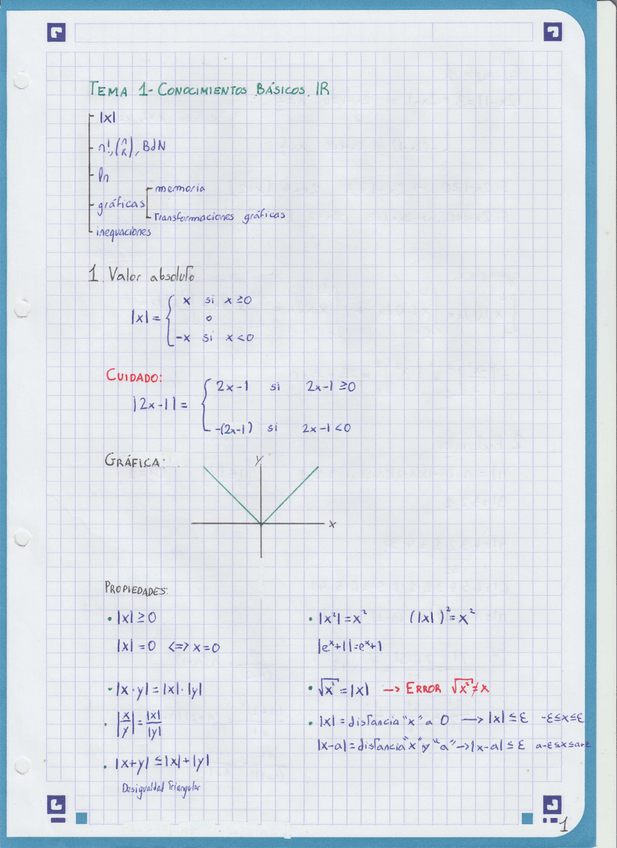 TEMA 1- CONOCIMIENTOS BÁSICOS. IR
|x|
n!, (n k), BdN
ln
gráficas
memoria
Transformaciones gráficas
inequaciones
1. Valor absoluto
|x| = { x si x ≥ 0
0
-x si x < 0
CUIDADO:
|2x-1| = { 2x-1 si 2x-1 ≥ 0
-(2x-1) si 2x-1 < 0
GRÁFICA:
y
x
PROPIEDADES:
• |x| ≥ 0
|x| = 0 <=> x = 0
• |x · y| = |x| · |y|
• |x/y| = |x|/|y|
• |x+y| ≤ |x| + |y|
Desigualdad Triangular
• |x²| = x² (|x|)² = x²
|eˣ+1| = eˣ+1
• √x² = |x| → ERROR √x² ≠ x
• |x| = distancia "x" a 0 → |x| ≤ ε -ε ≤ x ≤ ε
|x-a| = distancia "x" y "a" → |x-a| ≤ ε a-ε ≤ x ≤ a+ε
1